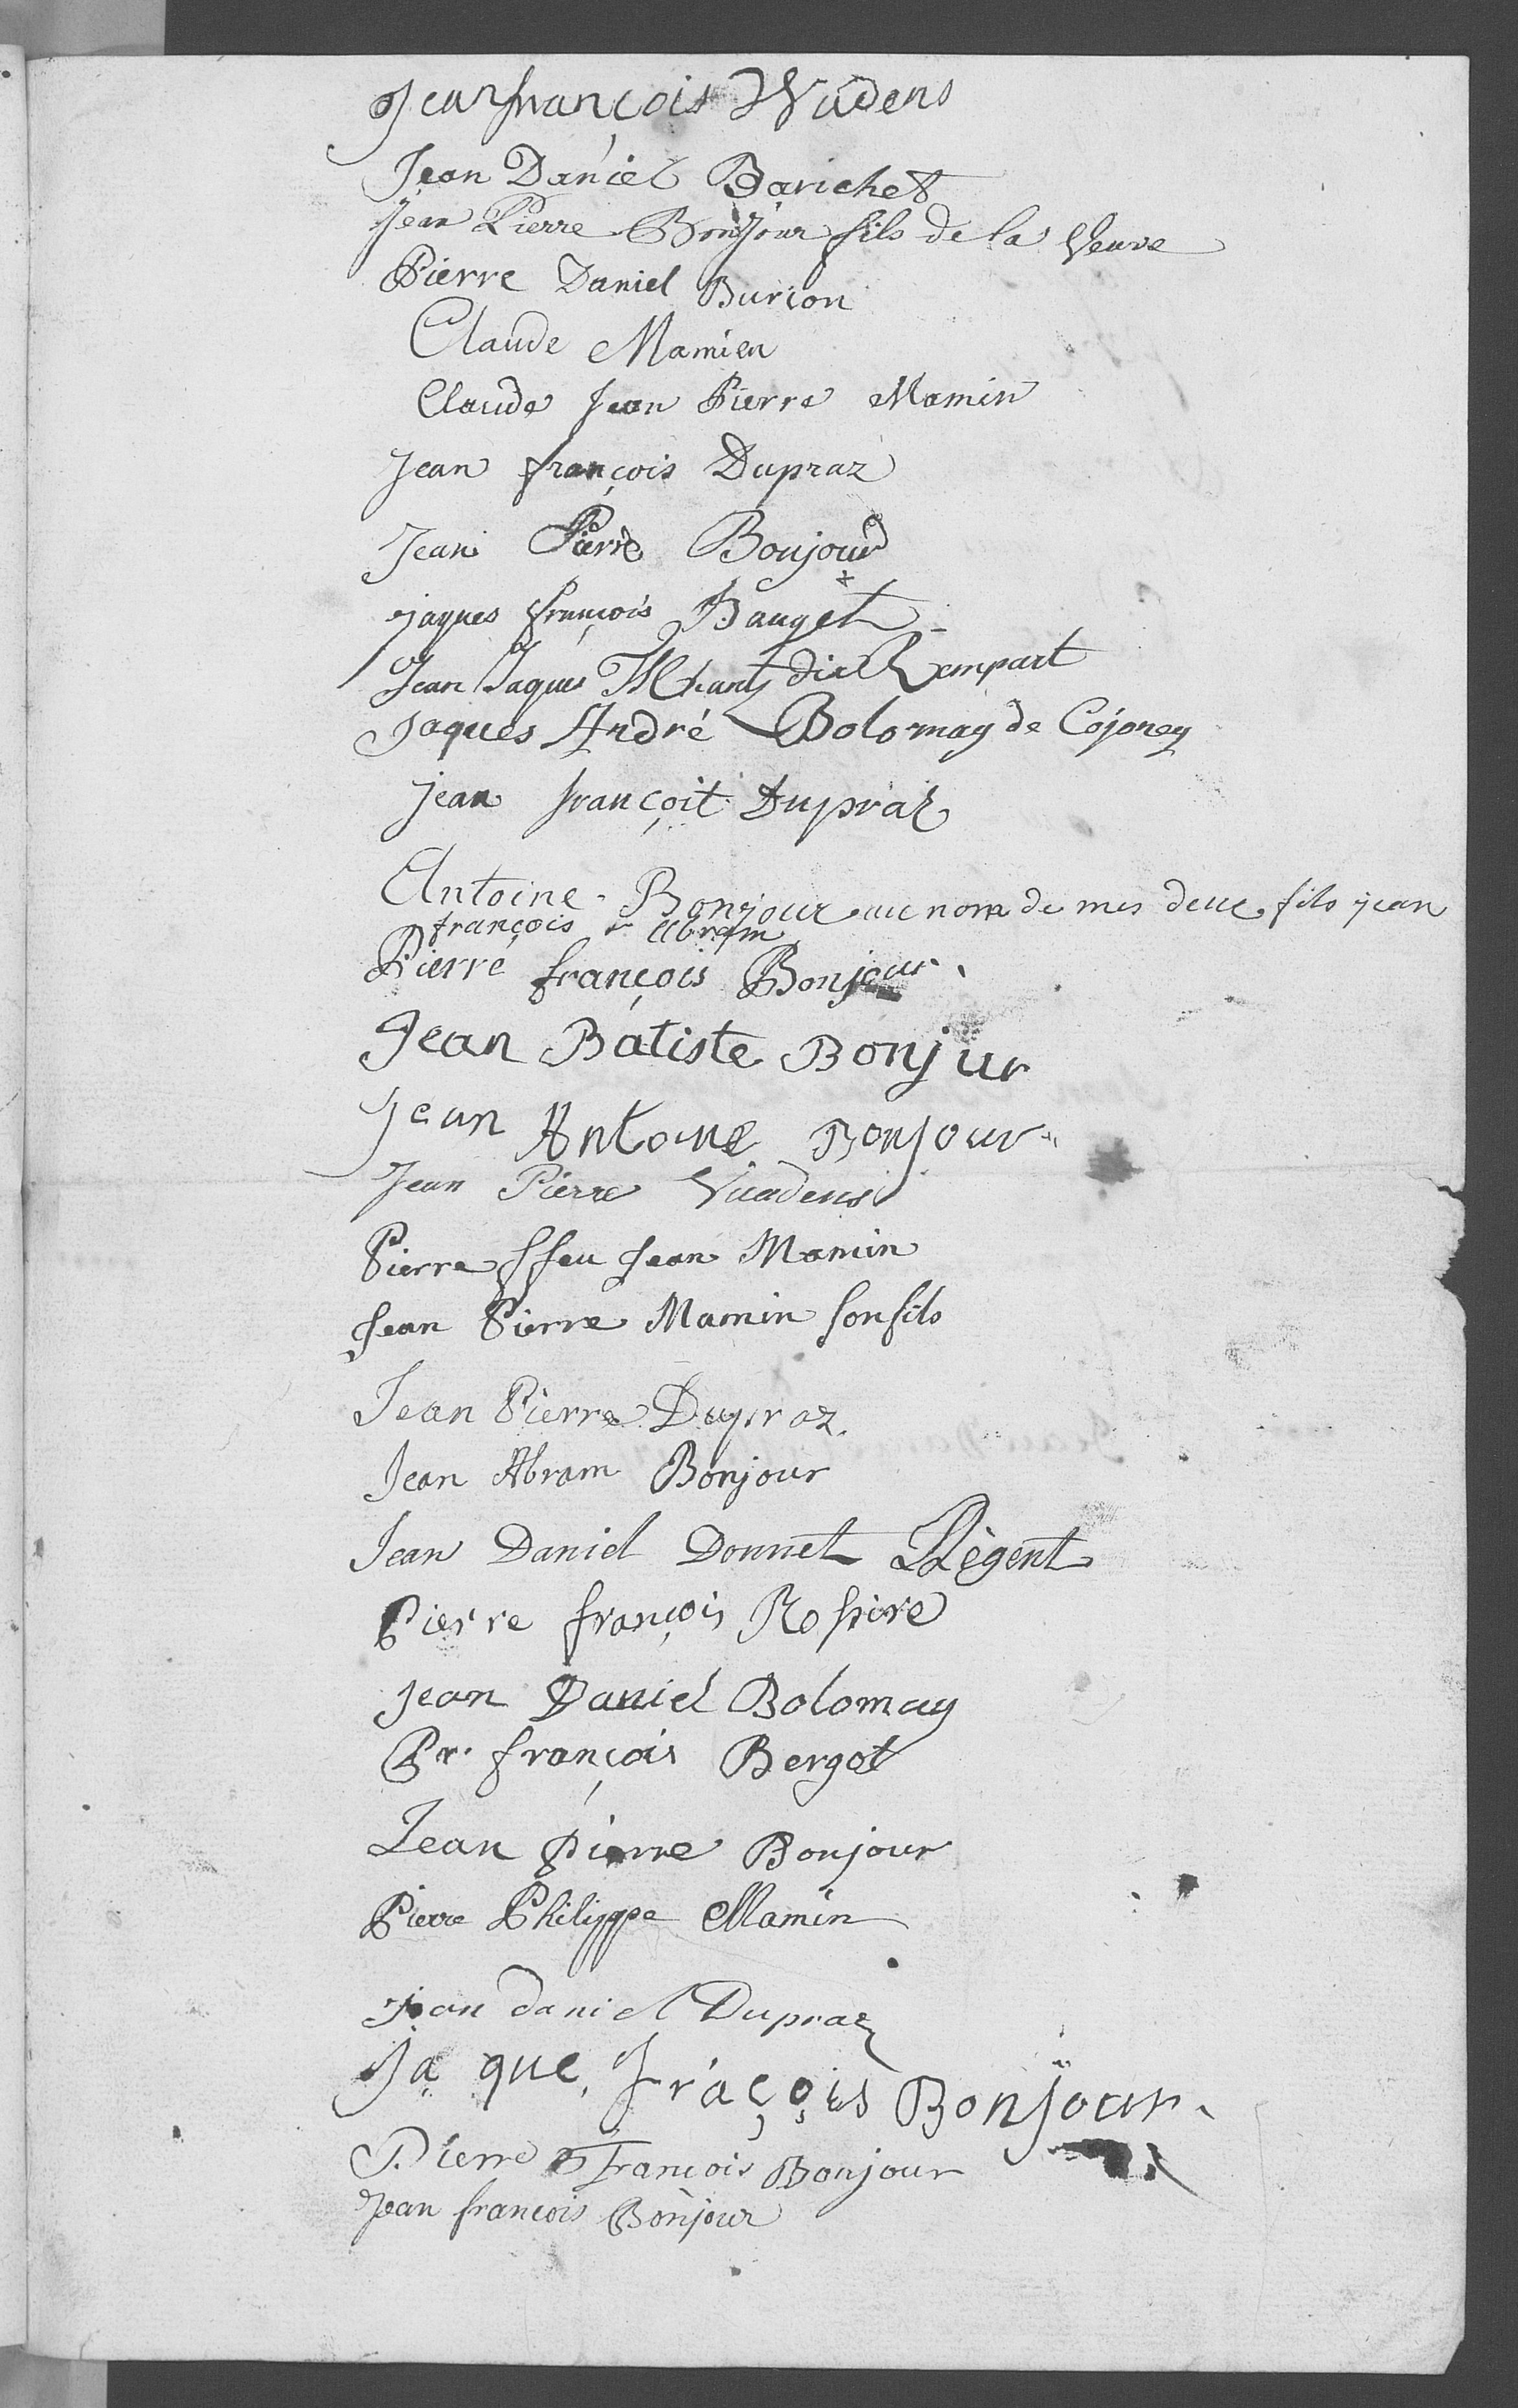 Jean françois Wūdens
Jean Daniel Barichet
Jean Pierre Bonjour fils de la Veuve
Pierre Daniel Burion
Claude Mamien
Claude Jean Pierre Mamin
Jean françois Dupraz
Jean Pierre Bonjour
jaques françois Bauget
Jean Jaques dit Rempart
Jaques André Bolomay de Cojoney
jean françoit Dupraz
Antoine Bonjour au nom de mes deuc fils jean
françois & Abram
Pierre françois Bonjour
Jean Batiste Bonjur
Jean Antoine Bonjour
Jean Pierre Vuadens
Pierre ffeu Jean Mamin
Jean Pierre Mamin son fils
Jean Pierre Dupraz.
Jean Abram Bonjour
Jean Daniel Donnet Règent
Pierre françois
Jean Daniel Bolomay
Pr. françois Bergot
Jean Pierre Bonjour
Pierre Philippe Mamin
jean daniel Dupraz
Ja que, fraçois Bonjour.
Pierre François Bonjour
Jean francois Bonjour